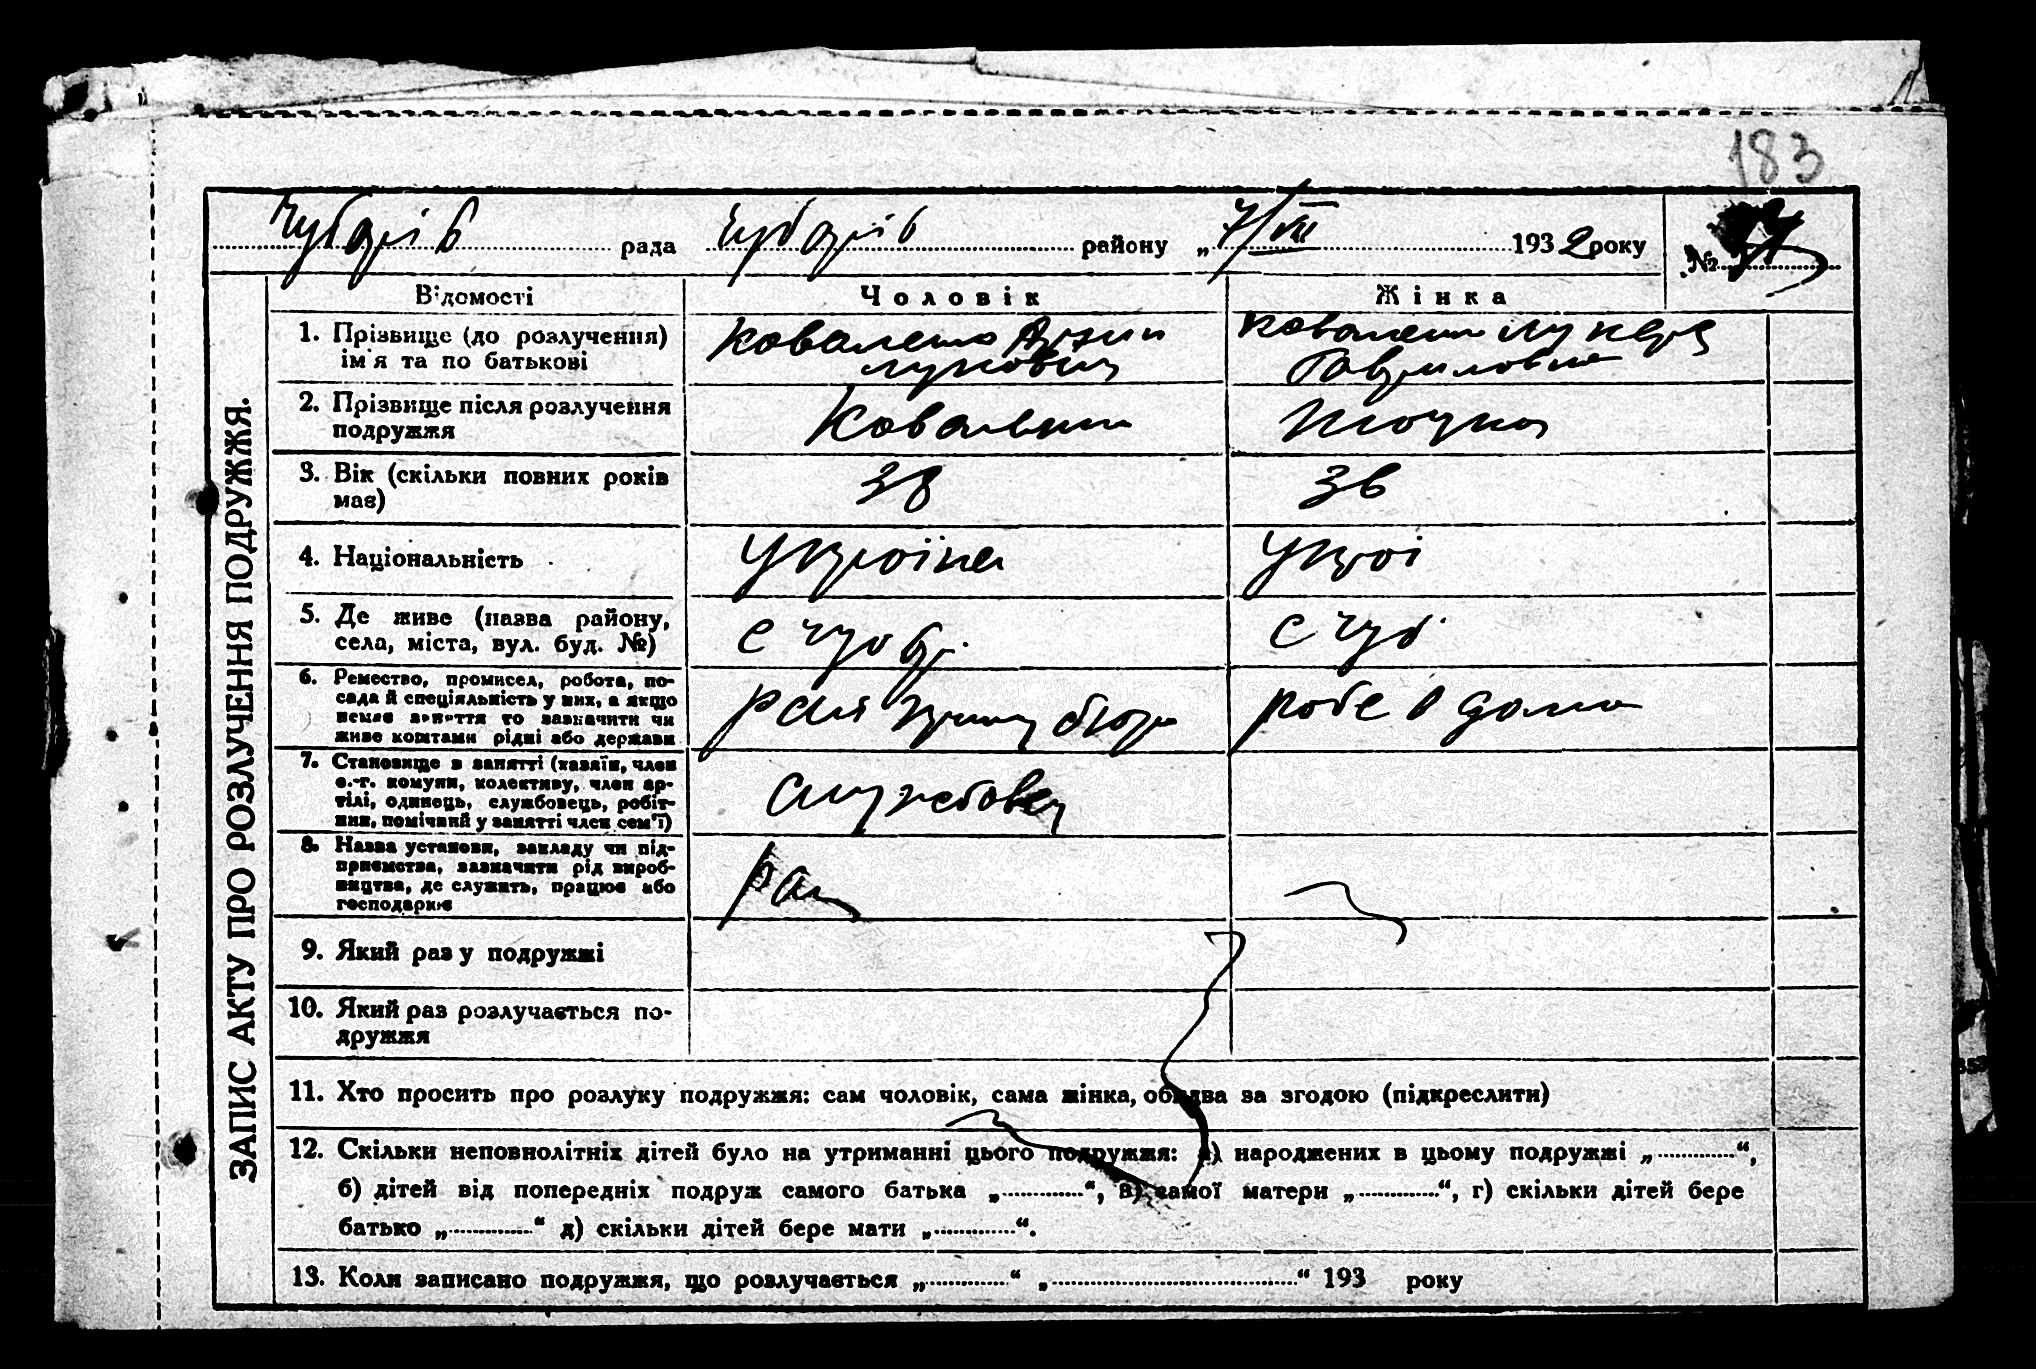 183
Чубарів рада Чубарів району „7/VII 1932 року №
ЗАПИС АКТУ ПРО РОЗЛУЧЕННЯ ПОДРУЖЖЯ.
Відомості Чоловік Жінка
1. Прізвище (до розлучення)
ім'я та по батькові
Лукович
Гавриловна
2. Прізвище після розлучення
подружжя
3. Вік (скільки повних років
має)
38 36
4. Національність
Україне Украі
5. Де живе (назва району,
села, міста, вул. буд. №)
с Чуб
6. Ремество, промисел, робота, по-
сада й спеціяльність у них, а якщо
немає заняття то зазначити чи
живе коштами рідні або держави
робе дома
7. Становище в занятті (хазяїн, член
с.-г. комуни, колективу, член ар-
тілі, одинець, службовець, робіт-
ник, помічний у занятті член сем'ї)
службовец
8. Назва установи, закладу чи під-
приємства, зазначити рід вироб-
ництва, де служить, працює або
господарює
9. Який раз у подружжі
10. Який раз розлучається по-
дружжя
11. Хто просить про розлуку подружжя: сам чоловік, сама жінка, обидва за згодою (підкреслити)
12. Скільки неповнолітніх дітей було на утриманні цього подружжя: а) народжених в цьому подружжі „............“,
б) дітей від попередніх подруж самого батька „............“, в) самої матери „............“, г) скільки дітей бере
батько „............“ д) скільки дітей бере мати „............“.
13. Коли записано подружжя, що розлучається „............“ „............“ 193 року